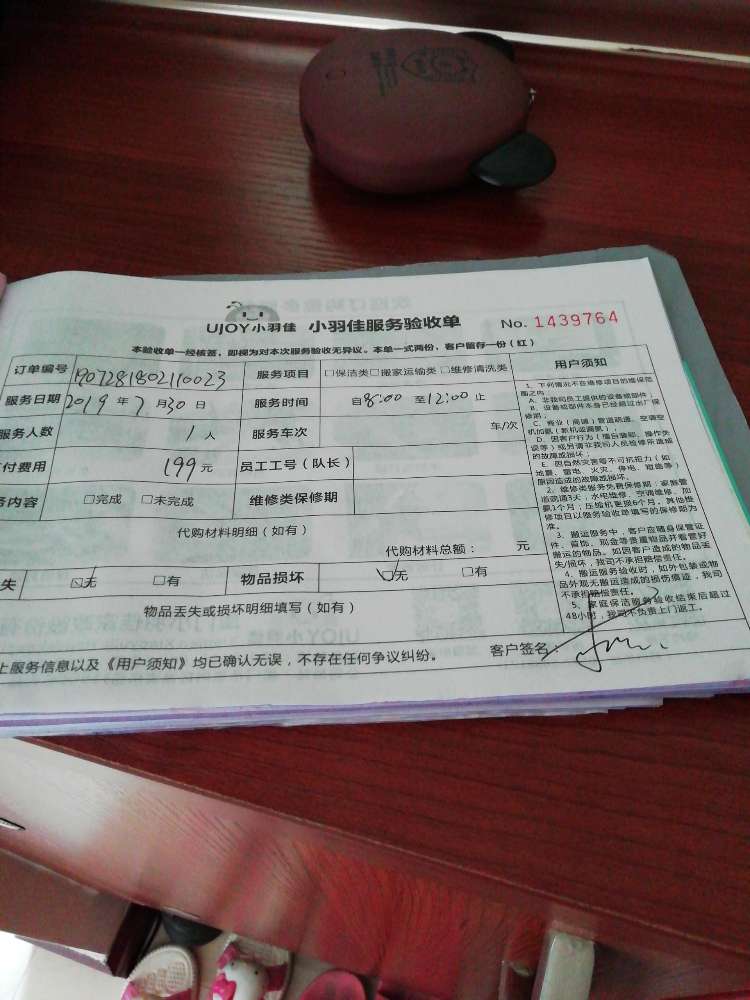 UJOY小羽佳 小羽佳服务验收单 No. 1439764
本验收单一经核签，即视为对本次服务验收无异议。本单一式两份，客户留存一份（红）
订单编号 1907281802110023 服务项目 □保洁类□搬家运输类□维修清洗类
服务日期 2019年7月30日 服务时间 自8:00 至12:00止
服务人数 1人 服务车次 车/次
付费用 199元 员工工号（队长）
务内容 □完成 □未完成 维修类保修期
代购材料明细（如有）
代购材料总额： 元
失 ☑无 □有 物品损坏 ☑无 □有
物品丢失或损坏明细填写（如有）
上服务信息以及《用户须知》均已确认无误，不存在任何争议纠纷。 客户签名：
用户须知
1、下列情况不在维修项目的维保范
围之内
A、非我司员工提供的设备或部件；
B、设备或部件本身已经超过出厂保
修期；
C、商业（高端）管道疏通，空调空
机加氨（新机或漏氟）；
E、因自然灾害等不可抗拒力（如
地震、雷电、火灾、停电、双磨等）
原因造成的故障或损坏。
2、维修类服务免费保修期：家庭管
道疏通3天，水电维修、空调维修、加
氨1个月；压缩机更报6个月。其他维
修项目以服务验收单填写的保修期为
准。
3、搬运服务中，客户应随身保管证
件、首饰、现金等贵重物品并看管好
搬运的物品。如因客户造成的物品丢
失/损坏，我司不承担赔偿责任。
4、搬运服务验收时，如外包装或物
品外观无搬运造成的损伤痕迹，我司
不承担赔偿责任。
5、家庭保洁服务验收结束后超过
48小时，我司不负责上门返工。